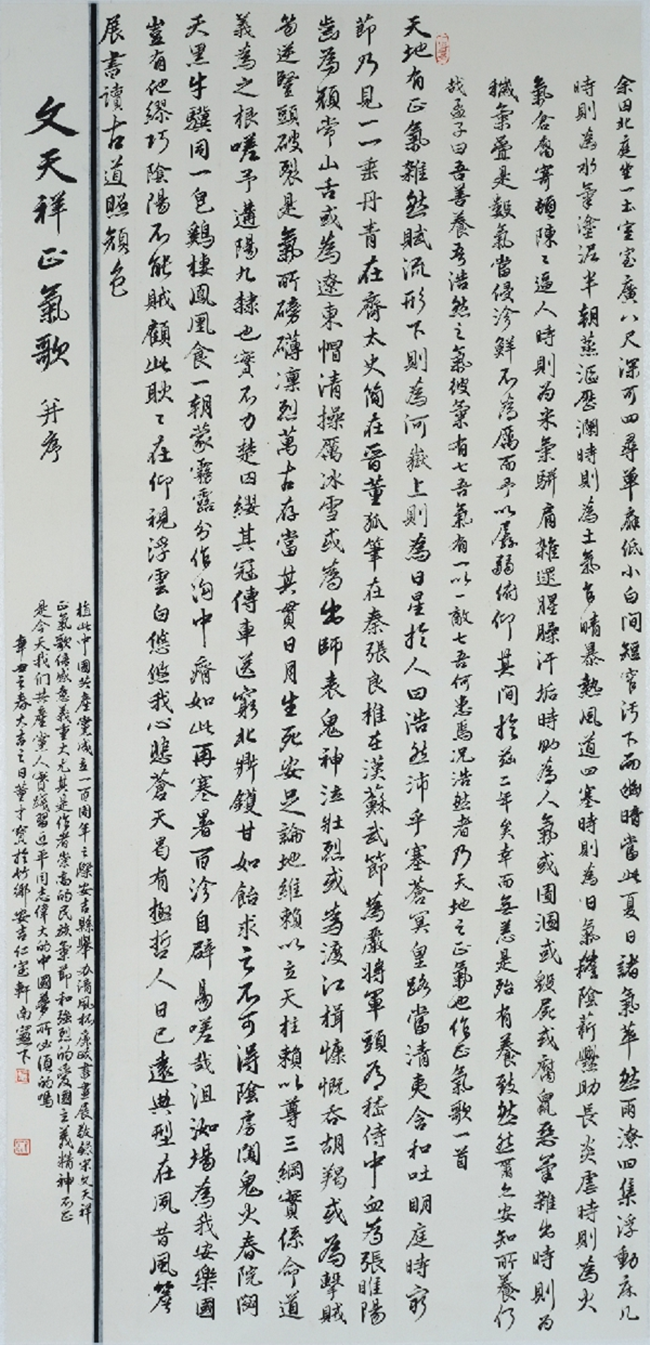 余囚北庭坐一土室室廣八尺深可四尋單扉低小白間短窄汙下而幽暗當此夏日諸氣萃然雨潦四集浮動床几
時則為水氣塗泥半朝蒸漚歷瀾時則為土氣乍晴暴熱風道四塞時則為日氣簷陰薪爨助長炎虐時則為火
氣倉腐寄頓陳陳逼人時則為米氣駢肩雜遝腥臊汗垢時則為人氣或圊溷或毀屍或腐鼠惡氣雜出時則為
穢氣疊是數氣當侵沴鮮不為厲而予以孱弱俯仰其間於茲二年矣幸而無恙是殆有養致然然爾亦安知所養何
哉孟子曰吾善養吾浩然之氣彼氣有七吾氣有一以一敵七吾何患焉况浩然者乃天地之正氣也作正氣歌一首
天地有正氣雜然賦流形下則為河嶽上則為日星於人曰浩然沛乎塞蒼冥皇路當清夷含和吐明庭時窮
節乃見一一垂丹青在齊太史簡在晉董狐筆在秦張良椎在漢蘇武節為嚴將軍頭為嵇侍中血為張睢陽
齒為顏常山舌或為遼東帽清操厲冰雪或為出師表鬼神泣壯烈或為渡江楫慷慨吞胡羯或為擊賊
笏逆豎頭破裂是氣所磅礴凜烈萬古存當其貫日月生死安足論地維賴以立天柱賴以尊三綱實係命道
義為之根嗟予遘陽九隸也實不力楚囚纓其冠傳車送窮北鼎鑊甘如飴求之不可得陰房闃鬼火春院閟
天黑牛驥同一皂鷄棲鳳凰食一朝蒙霧露分作溝中瘠如此再寒暑百沴自辟易嗟哉沮洳場為我安樂國
豈有他繆巧陰陽不能賊顧此耿耿在仰視浮雲白悠悠我心悲蒼天曷有極哲人日已遠典型在夙昔風簷
展書讀古道照顏色
文天祥正氣歌 并序
值此中國共產黨成立一百周年之際安吉縣舉办清風杯廉政書畫展敬錄宋文天祥
正氣歌倍感意義重大尤其是作者崇高的民族氣節和強烈的愛國主義精神不正
是今天我们共產黨人實踐習近平同志偉大的中國夢所必須的嗎
辛丑之春大吉之日董才寳於竹鄉安吉仁寳軒南窗下